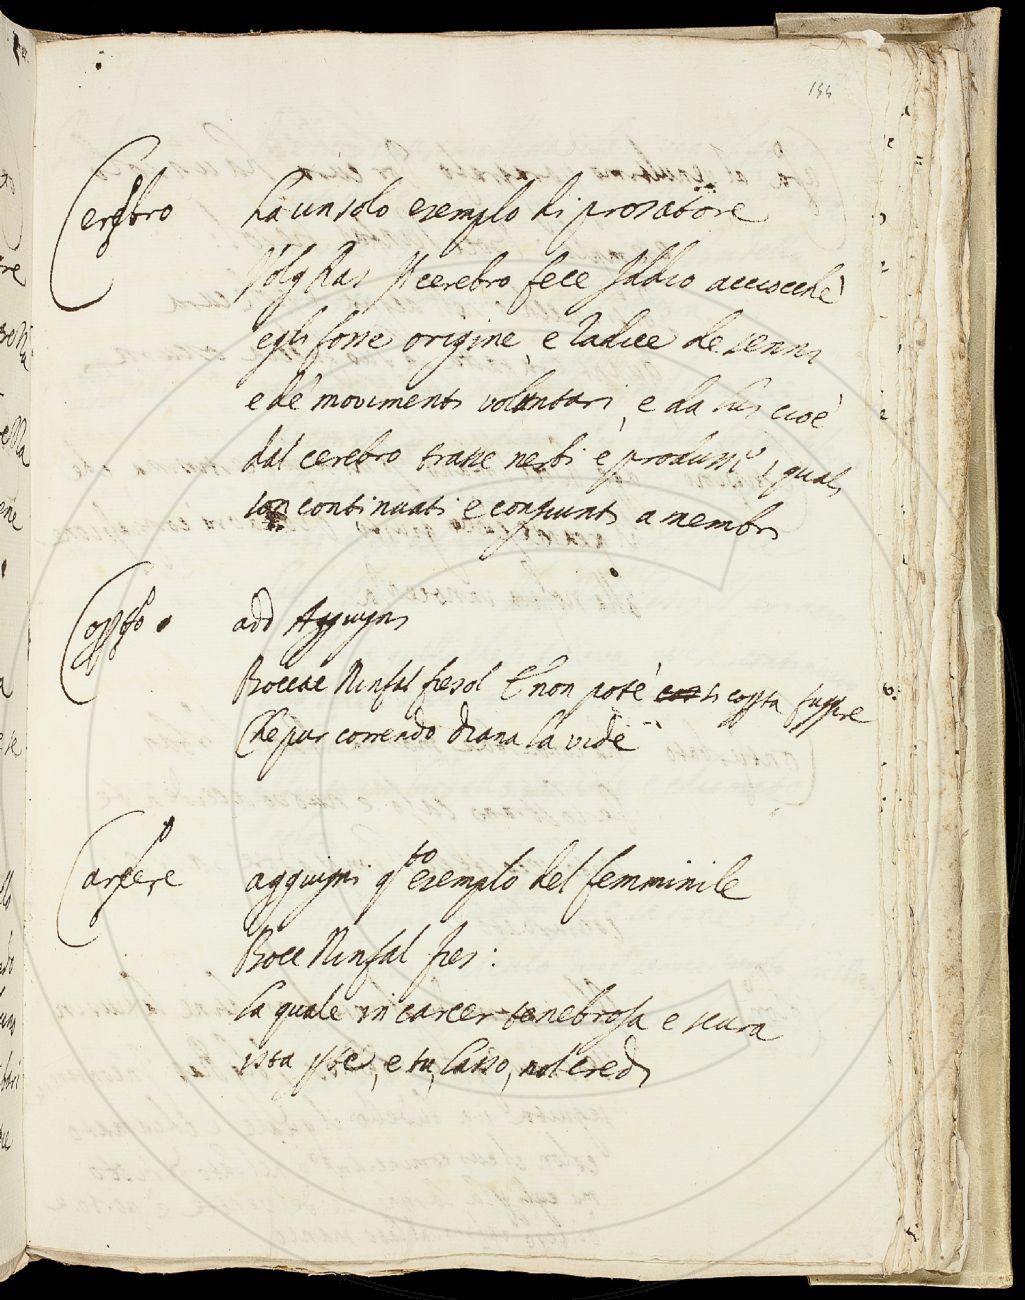 144
Cerebro ha un solo esemplo di prosatore
Volg Ras Il cerebro fece Iddio acciocche
egli fosse origine e radice de senni
e de movimenti volontari, e da lui cioè
dal cerebro trasse nerbi e produsse i quali
son continuati e congiunti a membri
add Aggiugni
Boccac Ninfal fiesol E non potè si coperta fuggire
Che pur correndo Diana la vide
Carcere aggiugni qto esemplo del femminile
Bocc Ninfal fies:
la quale in carcer tenebrosa e scura
ista pte, e tu, lasso, nol credi